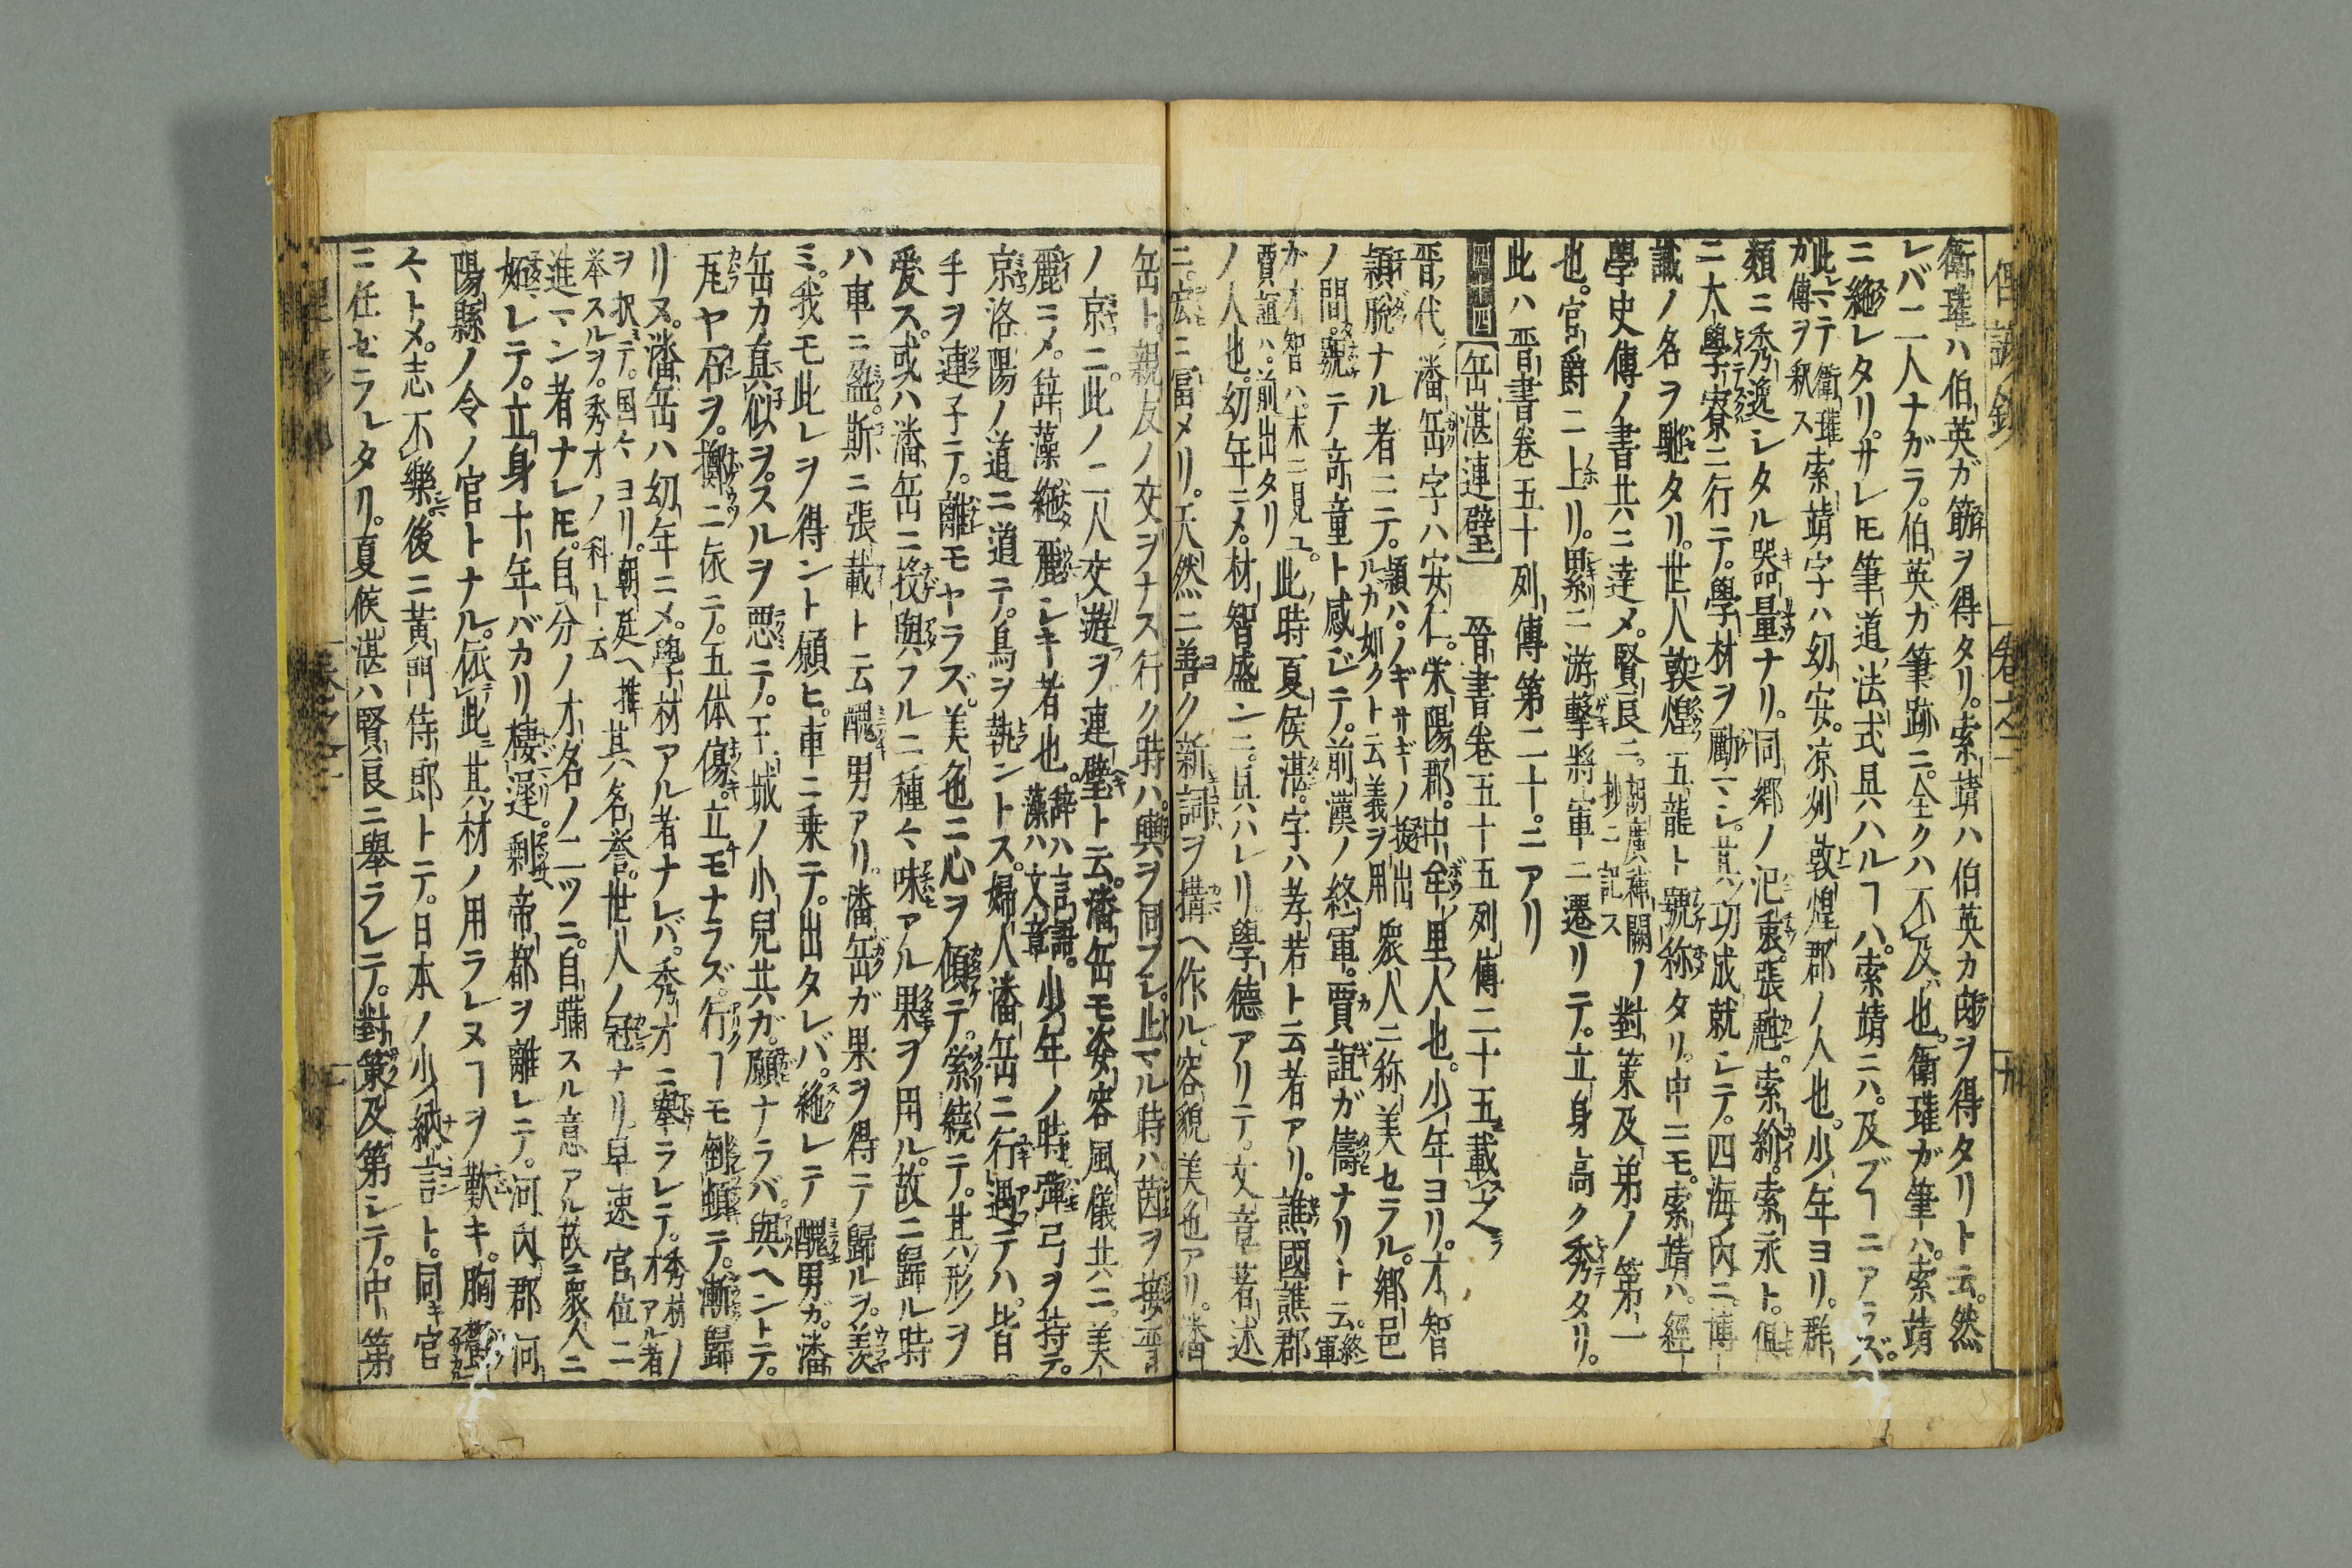 衛瓘ハ伯英ガ筋ヲ得タリ。索靖ハ伯英カ肉ヲ得タリト云。然
レバ二人ナガラ。伯英ガ筆跡ニ。全クハ不及也。衛瓘ガ筆ハ。索靖
ニ絶レタリ。サレ𪜈筆道ノ法式具ハルヿハ。索靖ニハ。及ブヿニアラズ。
此ニテ衛瓘
ガ傳ヲ釈ス
索靖字ハ幼安。凉列敦煌郡ノ人也。少年ヨリ。群
類ニ秀逸レタル器量ナリ。同郷ノ氾衷。張甝。索紾。索永ト。俱
ニ大學寮ニ行テ。學材ヲ勵マシ。其功成就シテ。四海ノ内ニ。博
識ノ名ヲ馳タリ。世人敦煌ノ五龍ト號称タリ。中ニモ。索靖ハ。經
學史傳ノ書共ニ達メ。賢良ニ。
胡廣補
抄ニ記ス
闕ノ對策及弟ノ第一
也。官爵ニ上リ。累ニ游擊將軍ニ遷リテ。立身高ク秀タリ。
此ハ晋書卷五十列傳第二十。ニアリ
四十四 岳湛連璧 晉書卷五十五列傳二十五載之
晋ノ代潘岳字ハ安仁。栄陽郡。中牟里人也。少年ヨリ。才智
穎脱ナル者ニテ。
穎ハ。ノギサギノ擬出
ルカ如クト云義ヲ用
衆人ニ称美セラル。郷邑
ノ間。號テ竒童ト感ジテ。前漢ノ終軍。賈誼ガ儔ナリト云。
終軍
ガ才智ハ。末ニ見ユ。
賈誼ハ。前出タリ
此時夏侯湛。字ハ孝若ト云者アリ。譙國譙郡
ノ人也。幼年ニメ。材智盛ンニ。具ハレリ。學德アリテ。文章著述
ニ。宏ニ冨メリ。天然ニ善ク新詞ヲ搆ヘ作ル。容貌美也アリ。潘
岳ト。親友ノ交ヲナス。行ク時ハ。輿ヲ同フシ。止マル時ハ。茵ヲ接。晋
ノ京ニ。此ノ二人交遊ヲ連璧ト云。潘岳モ姿容風儀共ニ。美
麗ニメ。辞藻絶麗シキ者也。
辞ハ言語。
藻ハ文章
少年ノ時。彈弓ヲ持テ。
京洛陽ノ道ニ道テ。鳥ヲ執ントス。婦人潘岳ニ行遇テハ。皆
手ヲ連子テ。離モヤラズ。美色ニ心ヲ傾テ。縈繞テ。其形ヲ
愛ス。或ハ潘岳ニ投與フルニ種々味アル果ヲ用ル。故ニ歸ル時
ハ車ニ盈。斯ニ張載ト云醜男アリ。潘岳ガ果ヲ得ニテ歸ルヲ。羨
ミ。我モ此レヲ得ント願ヒ。車ニ乗テ。出タレバ。絶レテ醜男ガ。潘
岳カ真似ヲ。スルヲ悪テ。干城ノ小兒共ガ。願ナラバ。與ヘントテ。
瓦ヤ石ヲ。擲ニ依テ。五体傷。立モナラズ。行ヿモ倒頓テ。漸歸
リヌ。潘岳ハ幼年ニメ。學材アル者ナレバ。秀才ニ舉ラレテ。
秀材ノ
才アル者
ヲ択テ。国々ヨリ。朝廷ヘ推
挙スルヲ。秀才ノ科ト云
其名誉。世人ノ冠ナリ。早速官位ニ
進マン者ナレ𪜈。自分ノ才名ノ二ツニ。自矙スル意アル故。衆人ニ
妬レテ。立身十年バカリ棲遅。剰帝都ヲ離レテ。河内郡河
陽縣ノ令ノ官トナル。依此其材ノ用ラレヌヿヲ歎キ。胸
々トメ。志不樂。後ニ黃門侍郎トテ。日本ノ少納言ト。同キ官
ニ任セラレタリ。夏侯湛ハ賢良ニ舉ラレテ。對策及第シテ。中第